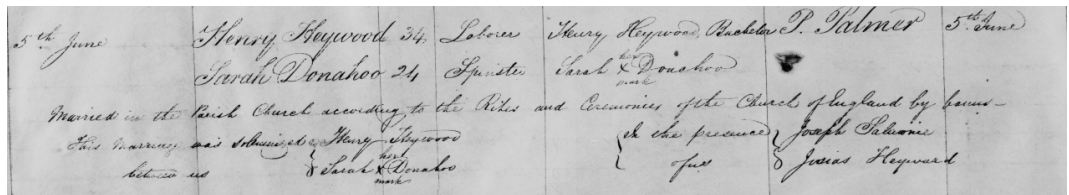 5th June Henry Heywood 34 Laborer Henry Heywood Bachelor P. Palmer 5th June
Sarah Donahoo 24 Spinster Sarah her X mark Donahoo
Married in the Parish Church according to the Rites and Ceremonies of the Church of England by banns
This marriage was solemnized between us { Henry Heywood
Sarah her X mark Donahoo
In the presence of us { Joseph
Josias Heyward